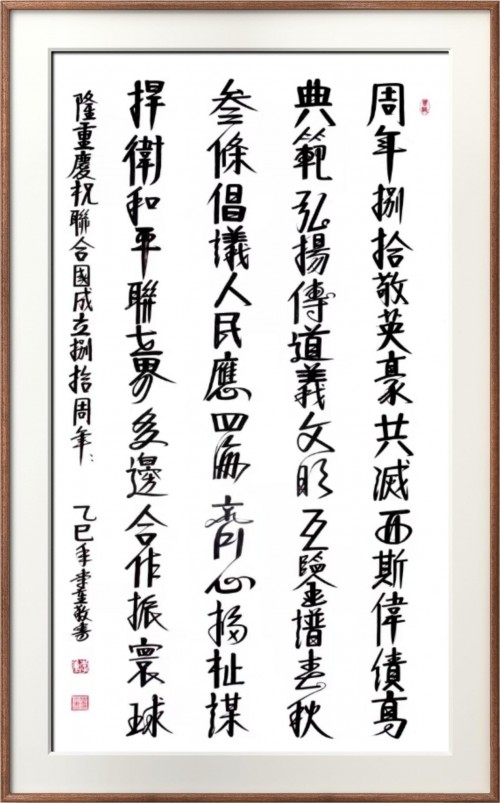 周年捌拾敬英豪共滅西斯偉績高
典範弘揚傳道義文明互鑒譜春秋
叁條倡議人民應四海齊心福祉謀
捍衛和平聯世界多邊合作振寰球
隆重慶祝聯合國成立捌拾周年：
乙巳年李敬書